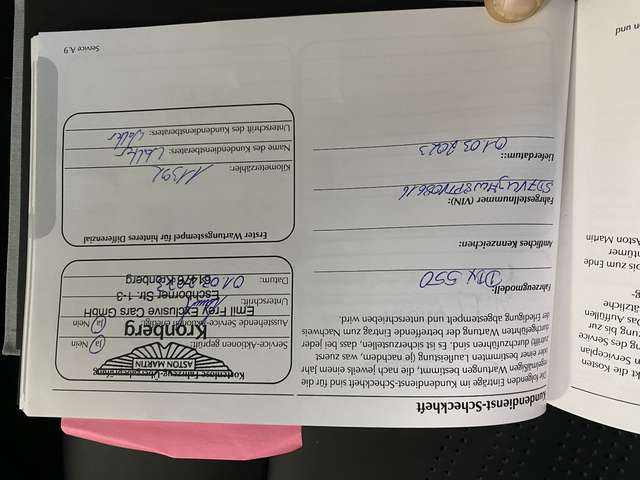 Kundendienst-Scheckheft
Die folgenden Einträge im Kundendienst-Scheckheft sind für die
regelmäßigen Wartungen bestimmt, die nach jeweils einem Jahr
oder einer bestimmten Laufleistung (je nachdem, was zuerst
zutrifft) durchzuführen sind. Es ist sicherzustellen, dass bei jeder
durchgeführten Wartung der betreffende Eintrag zum Nachweis
der Erledigung abgestempelt und unterschrieben wird.
Fahrzeugmodell:
DBX 550
Amtliches Kennzeichen:
Fahrgestellnummer (VIN):
Lieferdatum::
01.03.2023
ASTON MARTIN
Kronberg
Emil Frey Exclusive Cars GmbH
Eschborner Str. 1-3
61476 Kronberg
Service-Aktionen geprüft: Ja / Nein
Ausstehende Service-Aktionen erledigt: Ja / Nein
Unterschrift:
Datum: 01.03.2023
Erster Wartungsstempel für hinteres Differenzial
Kilometerzähler: 11392
Name des Kundendienstberaters: Walter
Unterschrift des Kundendienstberaters: Walter
Service A.9
en und
Aston Martin
bis zum Ende
Das Auffüllen
ung bis zur
ng des Service
n Serviceplan
kt die Kosten